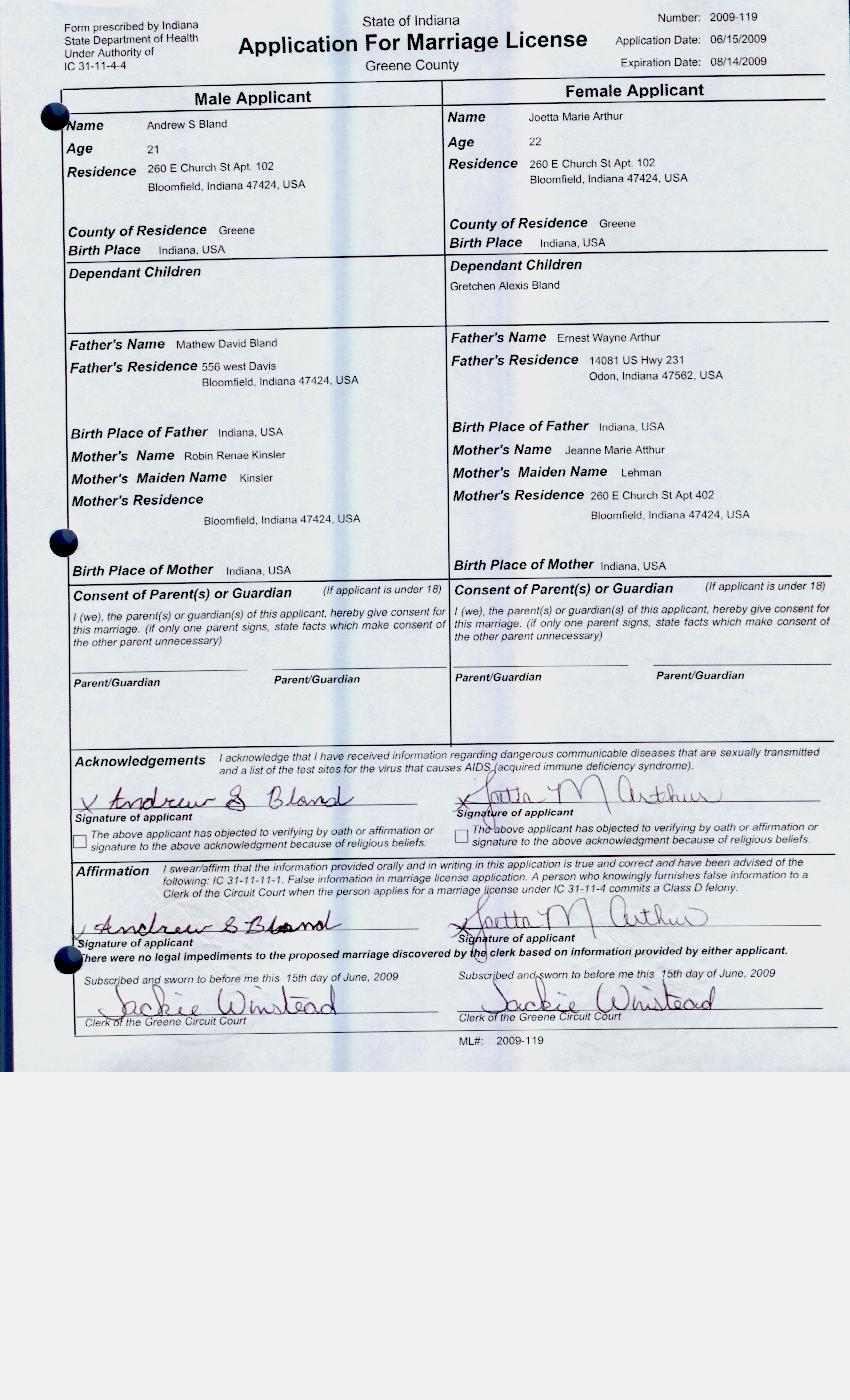 Form prescribed by Indiana
State Department of Health
Under Authority of
IC 31-11-4-4
State of Indiana
Application For Marriage License
Greene County
Number: 2009-119
Application Date: 06/15/2009
Expiration Date: 08/14/2009
Male Applicant
Name Andrew S Bland
Age 21
Residence 260 E Church St Apt. 102
Bloomfield, Indiana 47424, USA
County of Residence Greene
Birth Place Indiana, USA
Dependant Children
Father's Name Mathew David Bland
Father's Residence 556 west Davis
Bloomfield, Indiana 47424, USA
Birth Place of Father Indiana, USA
Mother's Name Robin Renae Kinsler
Mother's Maiden Name Kinsler
Mother's Residence
Bloomfield, Indiana 47424, USA
Birth Place of Mother Indiana, USA
Consent of Parent(s) or Guardian (If applicant is under 18)
I (we), the parent(s) or guardian(s) of this applicant, hereby give consent for
this marriage. (if only one parent signs, state facts which make consent of
the other parent unnecessary)
Parent/Guardian Parent/Guardian
Female Applicant
Name Joetta Marie Arthur
Age 22
Residence 260 E Church St Apt. 102
Bloomfield, Indiana 47424, USA
County of Residence Greene
Birth Place Indiana, USA
Dependant Children
Gretchen Alexis Bland
Father's Name Ernest Wayne Arthur
Father's Residence 14081 US Hwy 231
Odon, Indiana 47562, USA
Birth Place of Father Indiana, USA
Mother's Name Jeanne Marie Atthur
Mother's Maiden Name Lehman
Mother's Residence 260 E Church St Apt 402
Bloomfield, Indiana 47424, USA
Birth Place of Mother Indiana, USA
Consent of Parent(s) or Guardian (If applicant is under 18)
I (we), the parent(s) or guardian(s) of this applicant, hereby give consent for
this marriage. (if only one parent signs, state facts which make consent of
the other parent unnecessary)
Parent/Guardian Parent/Guardian
Acknowledgements I acknowledge that I have received information regarding dangerous communicable diseases that are sexually transmitted
and a list of the test sites for the virus that causes AIDS (acquired immune deficiency syndrome).
x Andrew S Bland
Signature of applicant
The above applicant has objected to verifying by oath or affirmation or
signature to the above acknowledgment because of religious beliefs.
x Joetta M Arthur
Signature of applicant
The above applicant has objected to verifying by oath or affirmation or
signature to the above acknowledgment because of religious beliefs.
Affirmation I swear/affirm that the information provided orally and in writing in this application is true and correct and have been advised of the
following: IC 31-11-11-1. False information in marriage license application. A person who knowingly furnishes false information to a
Clerk of the Circuit Court when the person applies for a marriage license under IC 31-11-4 commits a Class D felony.
x Andrew S Bland
Signature of applicant
x Joetta M Arthur
Signature of applicant
here were no legal impediments to the proposed marriage discovered by the clerk based on information provided by either applicant.
Subscribed and sworn to before me this 15th day of June, 2009
Jackie Winstead
Clerk of the Greene Circuit Court
Subscribed and sworn to before me this 15th day of June, 2009
Jackie Winstead
Clerk of the Greene Circuit Court
ML#: 2009-119